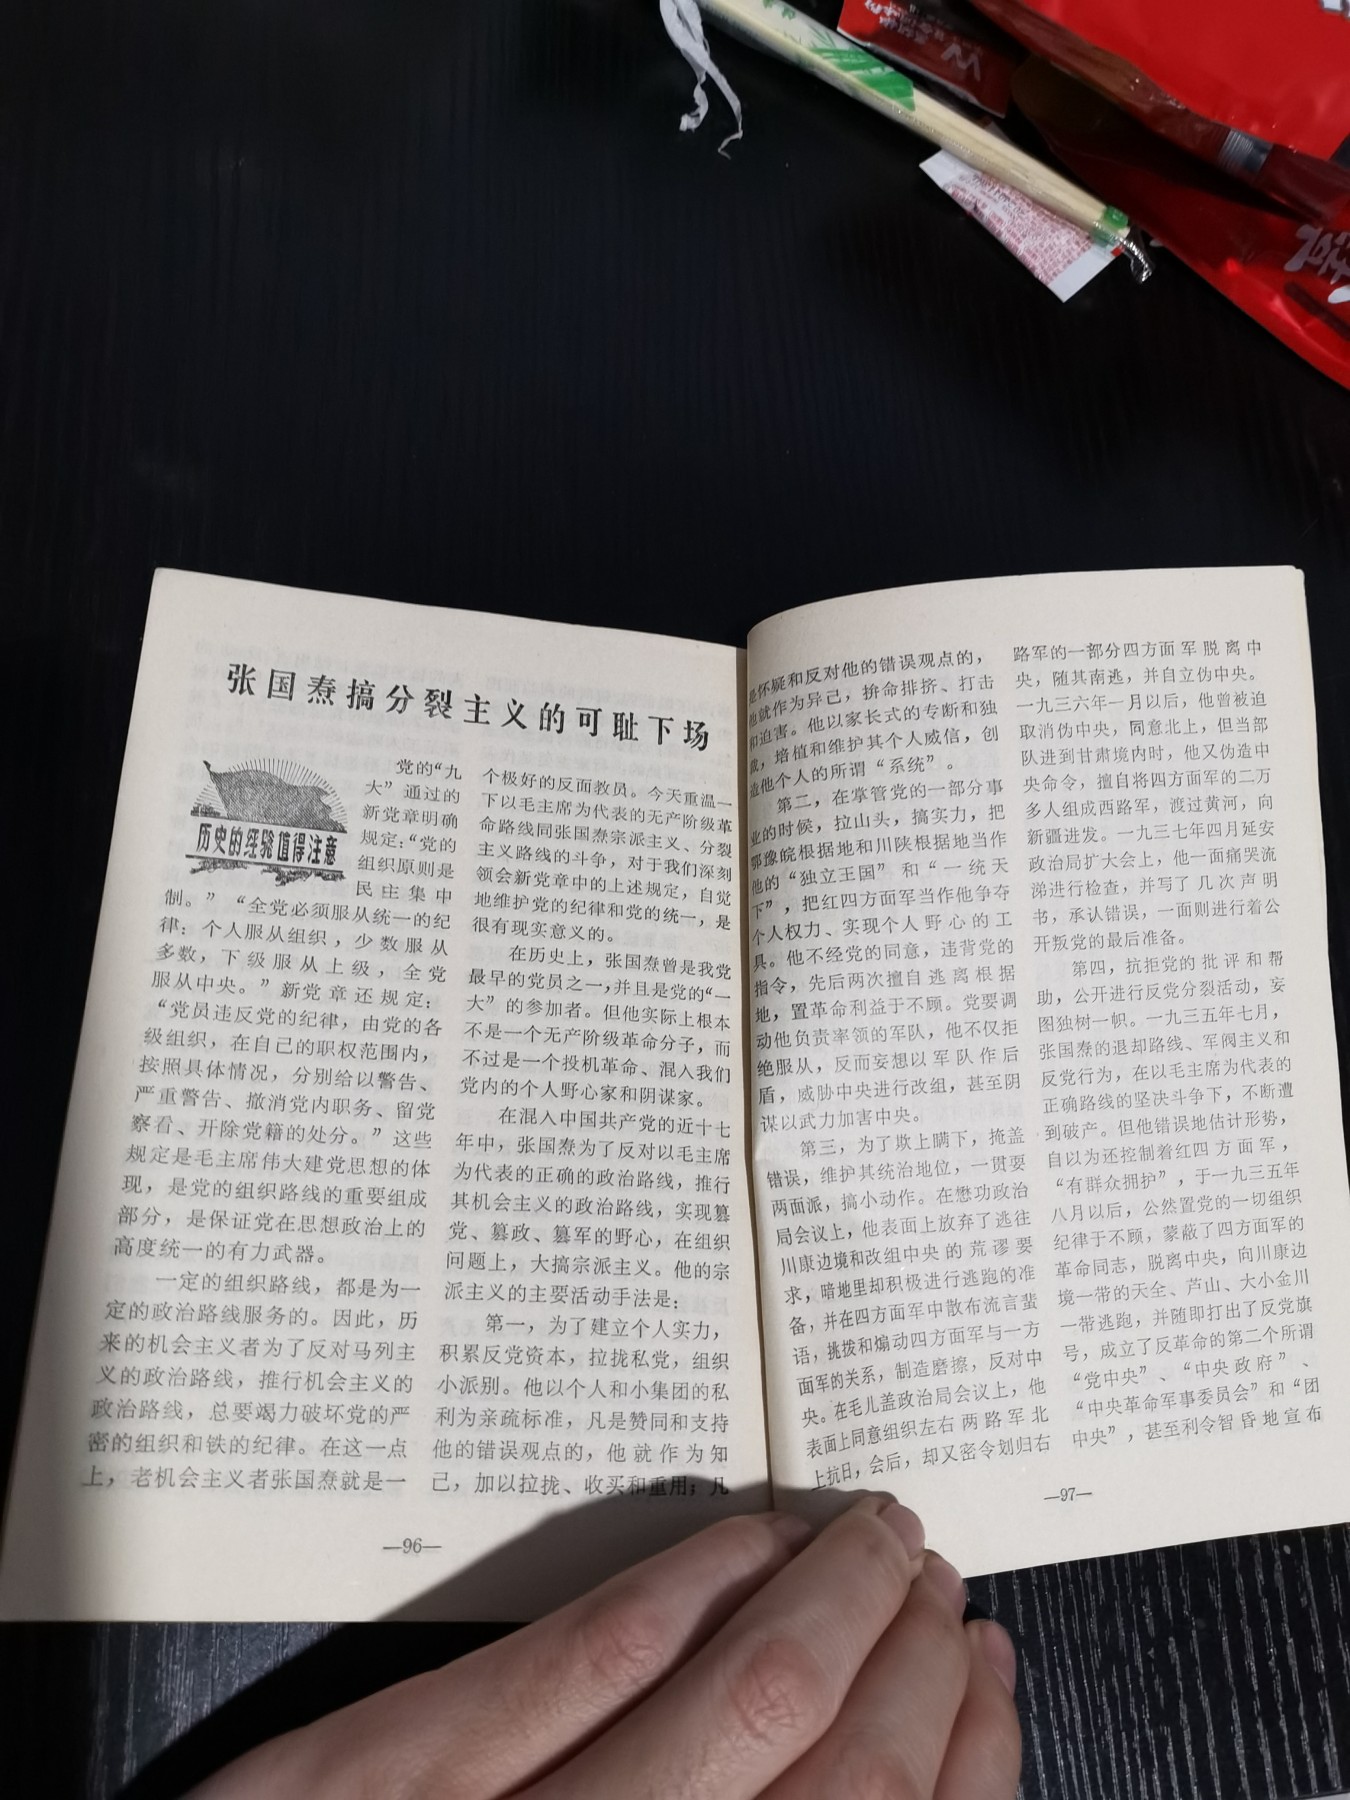 张国焘搞分裂主义的可耻下场
历史的经验值得注意
党的“九
大”通过的
新党章明确
规定：“党的
组织原则是
民主集中
制。”“全党必须服从统一的纪
律：个人服从组织，少数服从
多数，下级服从上级，全党
服从中央。”新党章还规定：
“党员违反党的纪律，由党的各
级组织，在自己的职权范围内，
按照具体情况，分别给以警告、
严重警告、撤消党内职务、留党
察看、开除党籍的处分。”这些
规定是毛主席伟大建党思想的体
现，是党的组织路线的重要组成
部分，是保证党在思想政治上的
高度统一的有力武器。
一定的组织路线，都是为一
定的政治路线服务的。因此，历
来的机会主义者为了反对马列主
义的政治路线，推行机会主义的
政治路线，总要竭力破坏党的严
密的组织和铁的纪律。在这一点
上，老机会主义者张国焘就是一
个极好的反面教员。今天重温一
下以毛主席为代表的无产阶级革
命路线同张国焘宗派主义、分裂
主义路线的斗争，对于我们深刻
领会新党章中的上述规定，自觉
地维护党的纪律和党的统一，是
很有现实意义的。
在历史上，张国焘曾是我党
最早的党员之一，并且是党的“一
大”的参加者。但他实际上根本
不是一个无产阶级革命分子，而
不过是一个投机革命、混入我们
党内的个人野心家和阴谋家。
在混入中国共产党的近十七
年中，张国焘为了反对以毛主席
为代表的正确的政治路线，推行
其机会主义的政治路线，实现篡
党、篡政、篡军的野心，在组织
问题上，大搞宗派主义。他的宗
派主义的主要活动手法是：
第一，为了建立个人实力，
积累反党资本，拉拢私党，组织
小派别。他以个人和小集团的私
利为亲疏标准，凡是赞同和支持
他的错误观点的，他就作为知
己，加以拉拢、收买和重用；凡
—96—
是怀疑和反对他的错误观点的，
他就作为异己，拚命排挤、打击
和迫害。他以家长式的专断和独
裁，培植和维护其个人威信，创
造他个人的所谓“系统”。
第二，在掌管党的一部分事
业的时候，拉山头，搞实力，把
鄂豫皖根据地和川陕根据地当作
他的“独立王国”和“一统天
下”，把红四方面军当作他争夺
个人权力、实现个人野心的工
具。他不经党的同意，违背党的
指令，先后两次擅自逃离根据
地，置革命利益于不顾。党要调
动他负责率领的军队，他不仅拒
绝服从，反而妄想以军队作后
盾，威胁中央进行改组，甚至阴
谋以武力加害中央。
第三，为了欺上瞒下，掩盖
错误，维护其统治地位，一贯耍
两面派，搞小动作。在懋功政治
局会议上，他表面上放弃了逃往
川康边境和改组中央的荒谬要
求，暗地里却积极进行逃跑的准
备，并在四方面军中散布流言蜚
语，挑拨和煽动四方面军与一方
面军的关系，制造磨擦，反对中
央。在毛儿盖政治局会议上，他
表面上同意组织左右两路军北
上抗日，会后，却又密令划归右
路军的一部分四方面军脱离中
央，随其南逃，并自立伪中央。
一九三六年一月以后，他曾被迫
取消伪中央，同意北上，但当部
队进到甘肃境内时，他又伪造中
央命令，擅自将四方面军的二万
多人组成西路军，渡过黄河，向
新疆进发。一九三七年四月延安
政治局扩大会上，他一面痛哭流
涕进行检查，并写了几次声明
书，承认错误，一面则进行着公
开叛党的最后准备。
第四，抗拒党的批评和帮
助，公开进行反党分裂活动，妄
图独树一帜。一九三五年七月，
张国焘的退却路线、军阀主义和
反党行为，在以毛主席为代表的
正确路线的坚决斗争下，不断遭
到破产。但他错误地估计形势，
自以为还控制着红四方面军，
“有群众拥护”，于一九三五年
八月以后，公然置党的一切组织
纪律于不顾，蒙蔽了四方面军的
革命同志，脱离中央，向川康边
境一带的天全、芦山、大小金川
一带逃跑，并随即打出了反党旗
号，成立了反革命的第二个所谓
“党中央”、“中央政府”、
“中央革命军事委员会”和“团
中央”，甚至利令智昏地宣布
—97—